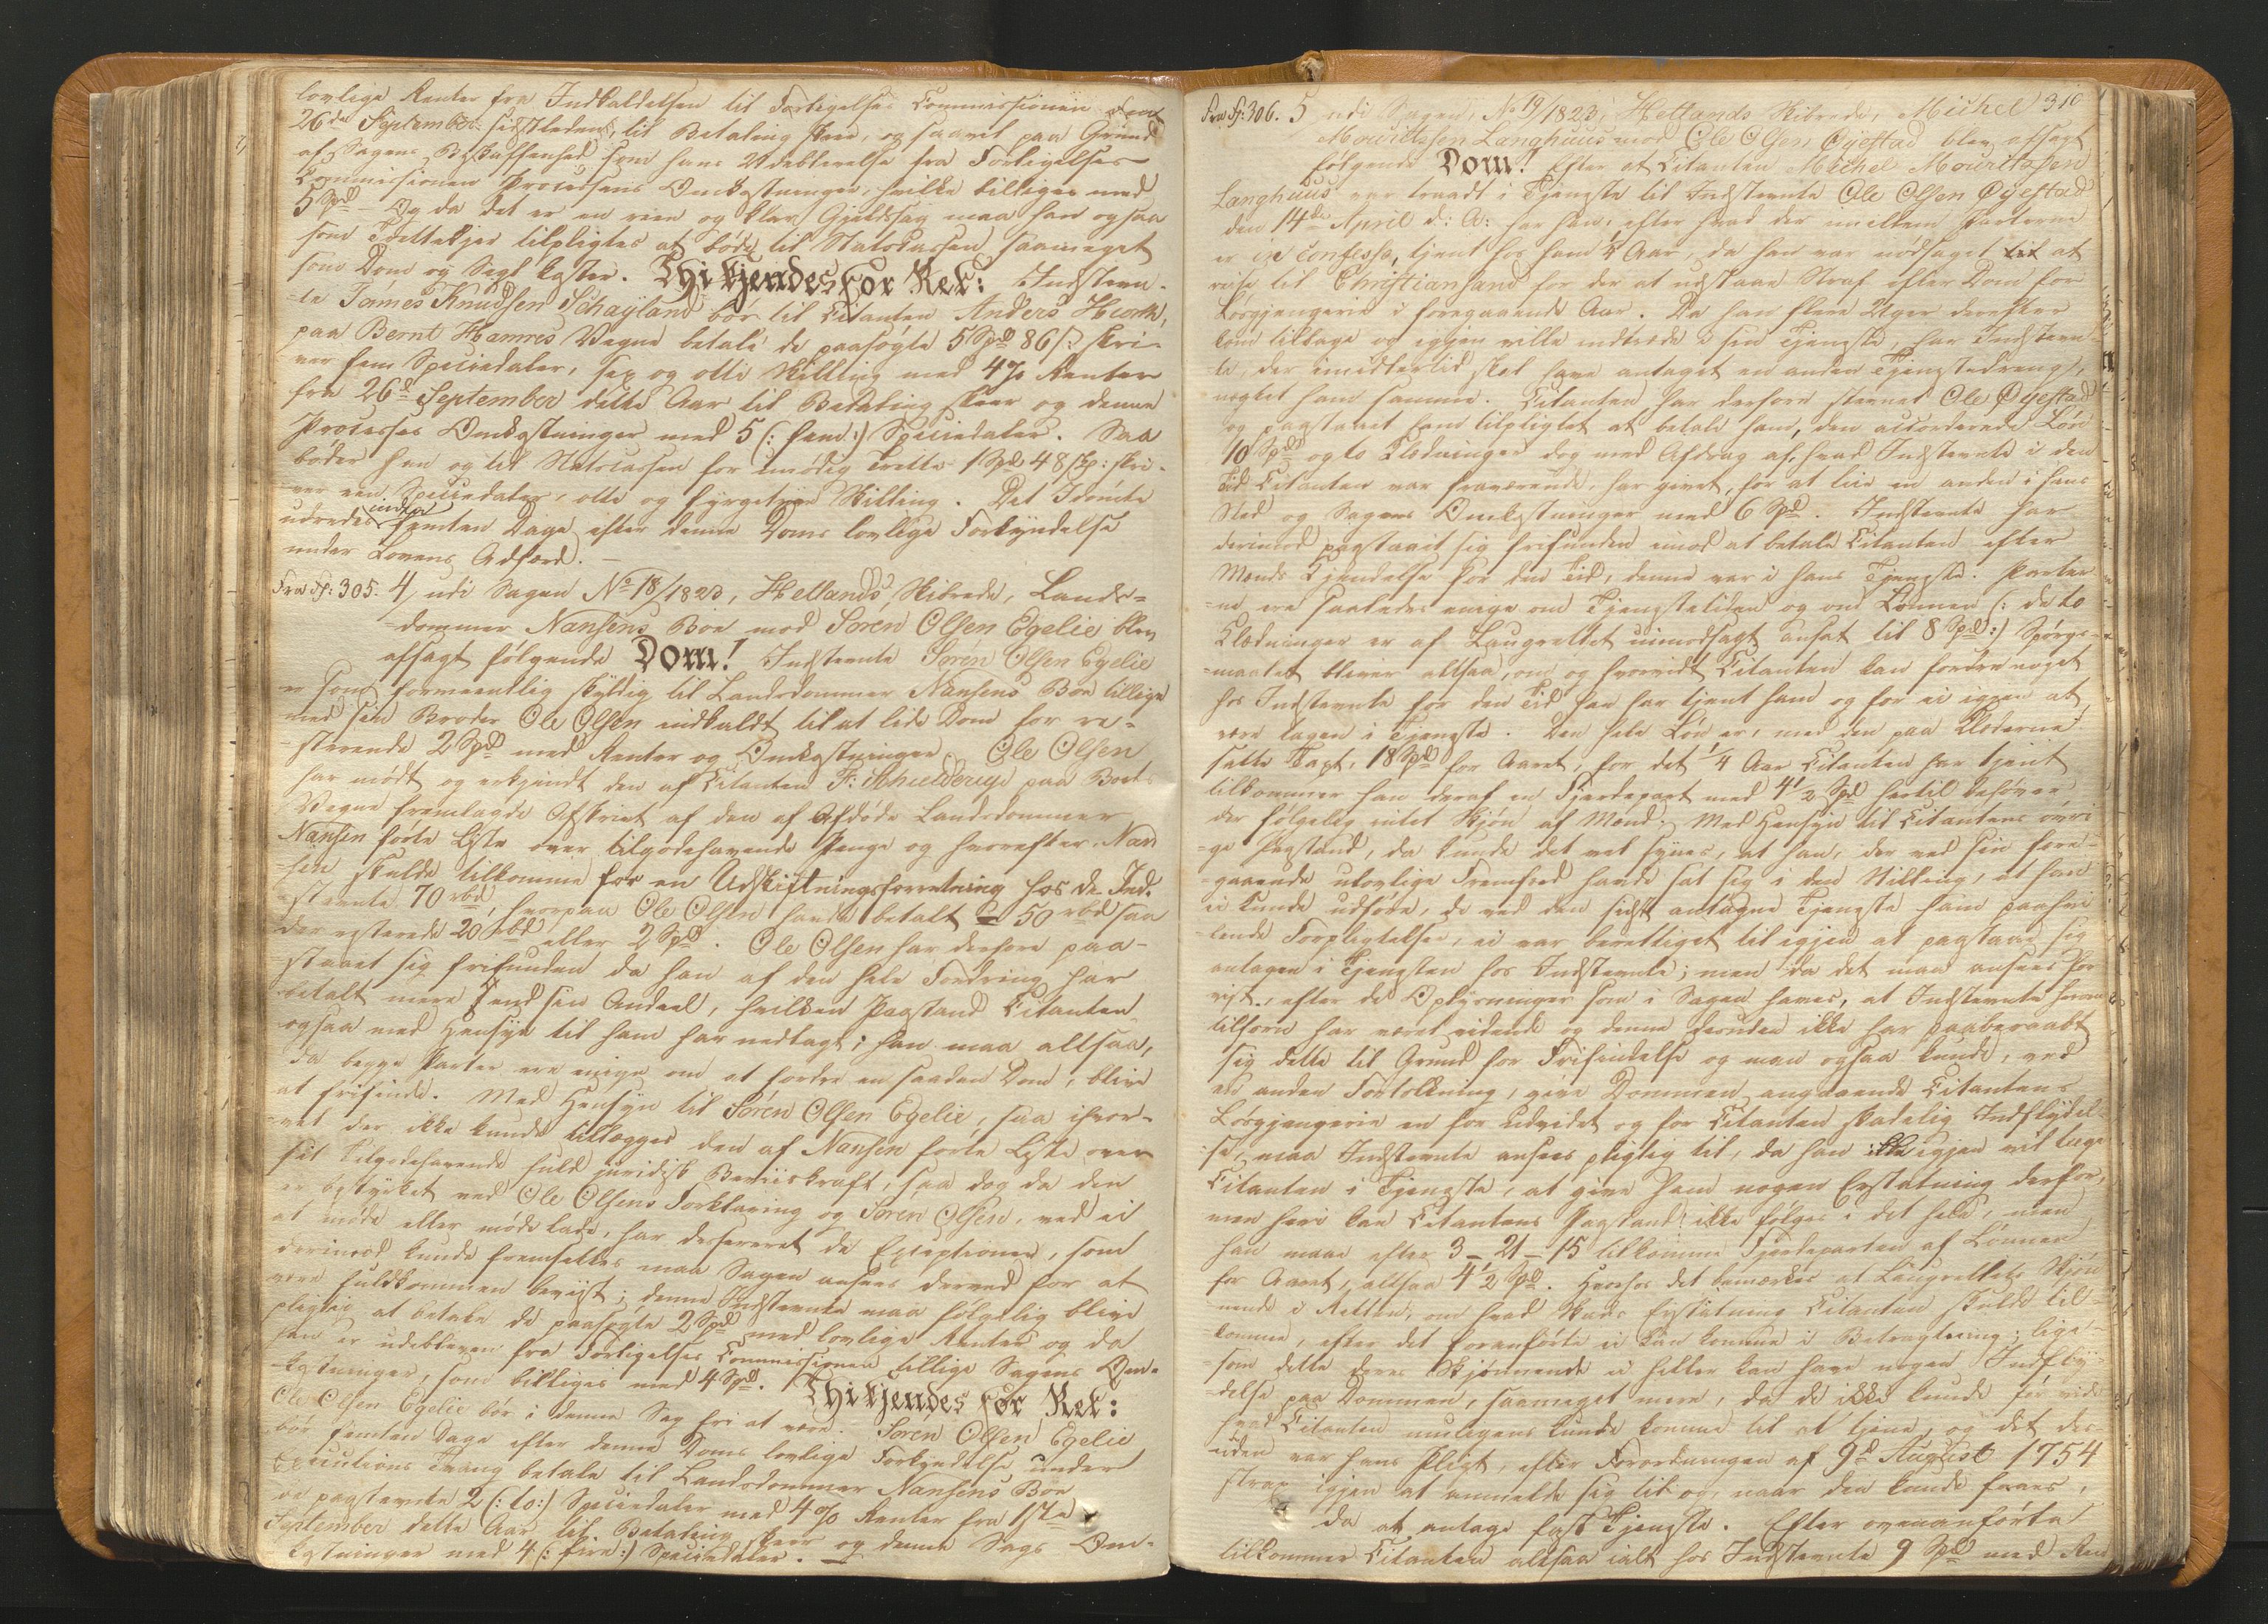 lovlige Renter fra Indkaldelsen til Forligelses Commissionen den
26de September sidstleden, til Betaling skeer, og saavel paa Grund
af Sagens Beskaffenhed som hans Udeblivelse fra Forligelses
Commissionen Processens Omkostninger, hvilke billiges med
5 Spd – Og da det er en reen og klar Gjeldssag maa han ogsaa
som Trettekjer tilpligtes at böde til Statskassen saameget
som Dom og Segl koster. Thi kjendes for Ret: Indstevn-
te Tämes Knudsen Schäyland bör til Citanten Anders Hiorth,
paa Bernt Hamres Vegne betale de paasögte 5 Spd 86 s: skri-
ver fem Speciedaler, sex og otti Skilling med 4 % Renter
fra 26d September dette Aar til Betaling skeer og denne
Processes Omkostninger med 5 (: fem :) Speciedaler. Saa
böder han og til Statscassen for unödig Trette 1 Spd 48 sk: skri-
ver een Speciedaler, otte og fyrgetyve Skilling. Det Idömte
udredes inden femten Dage efter denne Doms lovlige Forkyndelse
under Lovens Adfærd. –
Fra Fp: 305. 4, udi Sagen No 18/1823, Hetlands Skibrede, Lands-
dommer Nansens Boe mod Sören Olsen Egelie blev
afsagt fölgende Dom! Indstevnte Sören Olsen Egelie
er som formeentlig skyldig til Landsdommer Nansens Boe tillige
med sin Broder Ole Olsen indkaldt til at lide Dom for re-
sterende 2 Spd med Renter og Omkostninger. Ole Olsen
har mödt og erkjendt den af Citanten F: Schielderup paa Boets
Vegne fremlagde Afskrivt af den af Afdöde Landsdommer
Nansen förte Liste over tilgodehavende Penge og hvorefter Nan
sen skulde tilkomme for en Udskiftningsforretning hos de Ind-
stevnte 70 rbd, hvorpaa Ole Olsen havde betalt 50 rbd saa
der resterede 20 rbd eller 2 Spd. Ole Olsen har derfore paa-
staaet sig frifunden da han af den hele Fordring har
betalt mere end sin Andeel, hvilken Paastand Citanten
ogsaa med Hensyn til ham har nedlagt; han maa altsaa,
da begge Parter ere enige om at fordre en saadan Dom, blive
at frifinde. Med Hensyn til Sören Olsen Egelie, saa ihvor-
vel der ikke kunde tillægges den af Nansen förte Liste over
sit Tilgodehavende fuld juridisk Beviiskraft, saa dog da den
er bestyrket ved Ole Olsens Forklaring og Sören Olsen, ved ei
at möde eller möde lade, har desereret de Exceptioner, som
derimod kunde fremsettes maa Sagen ansees derved for at
være fuldkommen beviist; denne Indstevnte maa fölgelig blive
pligtig at betale de paasögte 2 Spd med lovlige Renter og da
han er udebleven fra Forligelses Commissionen tillige Sagens Om-
kostninger, som billiges med 4 Spd. Thi kjendes for Ret:
Ole Olsen Egelie bör i denne Sag fri at være. Sören Olsen Egelie
bör femten Dage efter denne Doms lovlige Forkyndelse under
Executions Tvang betale til Landsdommer Nansens Boe
de paastevnte 2 (: to :) Speciedaler med 4 % Renter fra 17de
September dette Aar til Betaling skeer og denne Sags Om-
kostninger med 4 (: fire :) Speciedaler. –
310
Fra Fp: 306. 5 udi Sagen, No 19/1823, Hetlands Skibrede, Michel
Mouritzsen Langhuus mod Ole Olsen Öyestad blev afsagt
fölgende Dom! Efter at Citanten Michel Mouritzsen
Langhuus var traadt i Tjeneste til Indstevnte Ole Olsen Öyestad
den 14de April d: A: har han, efter hvad der mellem Parterne
er in confesso, tjent hos ham 1/4 Aar, da han var nödsaget til at
reise til Christiansand for der at udstaae Straf efter Dom for
Lösgjengerie i foregaaende Aar. Da han flere Uger derefter
kom tilbage og igjen ville indtræde i sin Tjeneste, har Indstevn-
te, der imidlertid skal have antaget en anden Tjenestedreng,
negtet ham samme. Citanten har derfore stevnet Ole Öyestad
og paastaaet ham tilpligtet at betale ham, den accorderede Lön
10 Spd og to Klædninger dog med Afdrag af, hvad Indstevnte i den
Tid Citanten var fraværende, har givet, for at leie en anden i hans
Sted og Sagens Omkostninger med 6 Spd. Indstevnte har
derimod paastaaet sig frifunden imod at betale Citanten efter
Mænds Kjendelse for den Tid, denne var i hans Tjeneste. Parter-
ne ere saaledes enige om Tjenestetiden og om Lönnen (: de to
Klædninger er af Laugrettet uimodsagt ansat til 8 Spd :) Spörgs-
maalet bliver altsaa, om og hvorvidt Citanten kan fordre noget
hos Indstevnte for den Tid han har tjent ham og for ei igjen at
være tagen i Tjeneste. Den hele Lön er, med den paa Klæderne
satte Taxt, 18 Spd for Aaret, for det 1/4 Aar Citanten har tjent
tilkommer han deraf en Fjerdepart med 4 1/2 Spd hertil behöver
der fölgelig intet Skjön af Mænd. Med Hensyn til Citantens övri-
ge Paastand, da kunde det vel synes, at han, der ved sin fore-
gaaende ulovlige Fremferd havde sat sig i den Stilling, at han
ei kunde udföre, de ved den sidst antagne Tjeneste ham paahvi-
lende Forpligtelser, ei var berettiget til igjen at paastaae sig
antagen i Tjenesten hos Indstevnte; men da det maa ansees for
vist, efter de Oplysninger som i Sagen haves, at Indstevnte herom
tilforn har været vidende og denne desuden ikke har paaberaabt
sig dette til Grund for Frifindelse og man ogsaa kunde, ved
en anden Fortolkning, give Dommen angaaende Citantens
Lösgjengerie en for udvidet og for Citanten skadelig Indflydel-
se, maa Indstevnte ansees pligtig til, da han ikke igjen vil tage
Citanten i Tjeneste, at give ham nogen Erstatning derfor,
men heri kan Citantens Paastand ikke fölges i det hele, men
han maae efter 3 – 21 – 15 tilkomme Fjerdeparten af Lönnen
for Aaret, altsaa 4 1/2 Spd. Hvorhos det bemærkes at Laugrettets Skjön-
nende i Retten, om hvad Skades Erstatning Citanten skulde til-
komme, efter det foranförte ei kan komme i Betragtning; lige-
som dette deres Skjönnende ei heller kan have nogen Indfly-
delse paa Dommen, saameget mere, da de ikke kunde før vide
hvad Citanten muligens kunde komme til at tjene, og det des-
uden var hans Pligt, efter Forordningen af 9d August 1754
strax igjen at anmelde sig til og, naar den kunde faaes,
da at antage fast Tjeneste. Efter ovenanförte
tilkommer Citanten altsaa ialt hos Indstevnte 9 Spd med Ren